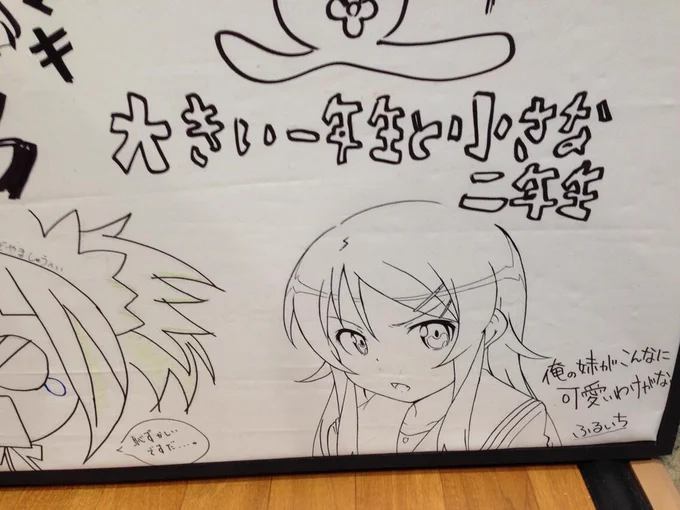 キ
大きい一年生と小さな
二年生
俺の妹がこんなに
可愛いわけがな
ふるいち
恥ずかしい
ですだ....。